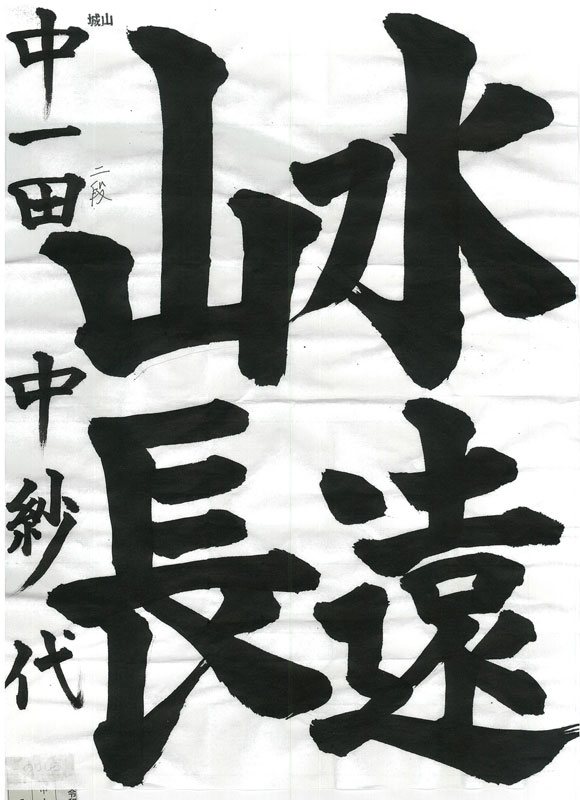 水遠
山長
城山
二段
中一 田中紗代